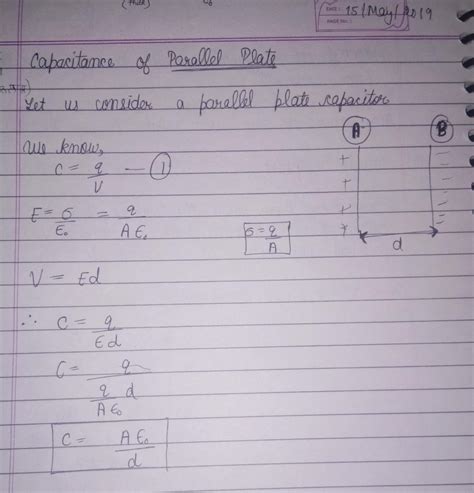 DATE: 15/May/2019
PAGE NO.:
Capacitance of Parallel Plate
Let us consider a parallel plate capacitor
We know,
C = q/V — ①
A B
+ -
+ -
+ -
+ -
d
E = σ/ε₀ = q/Aε₀
σ = q/A
V = Ed
∴ C = q/Ed
C = q/(q/Aε₀ d)
C = Aε₀/d